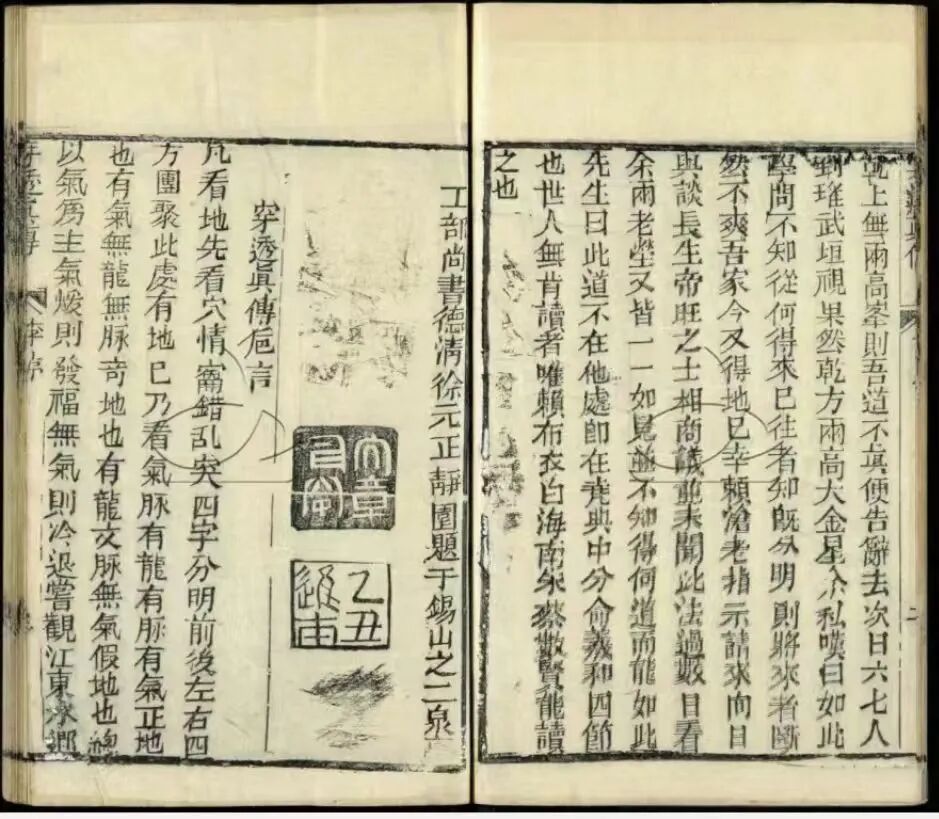 說上無兩高峯則吾道不眞便告辭去次日六七人
到璀武垣視果然乾方兩高大金星尒私嘆曰如此
學問不知從何得來已往者知旣分明則將來者斷
然不爽吾家今又得地已幸賴滄老指示請來向日
與談長生帝旺之士相商議並未聞此法過數日看
余兩老塋又皆一一如見並不知得何道而能如此
先生曰此道不在他處卽在堯典中分命羲和四節
也世人無肯讀者唯賴布衣白海南朱蔡數賢能讀
之也
工部尚書德淸徐元正靜園題于錫山之二泉
乙丑
穿透眞傳卮言
凡看地先看穴情窩錯乱突四字分明前後左右四
方團聚此處有地已乃看氣脉有龍有脉有氣正地
也有氣無龍無脉奇地也有龍文脉無氣假地也總
以氣爲主氣煖則發福無氣則冷退嘗觀江東水鄉
穿透眞傳 李序